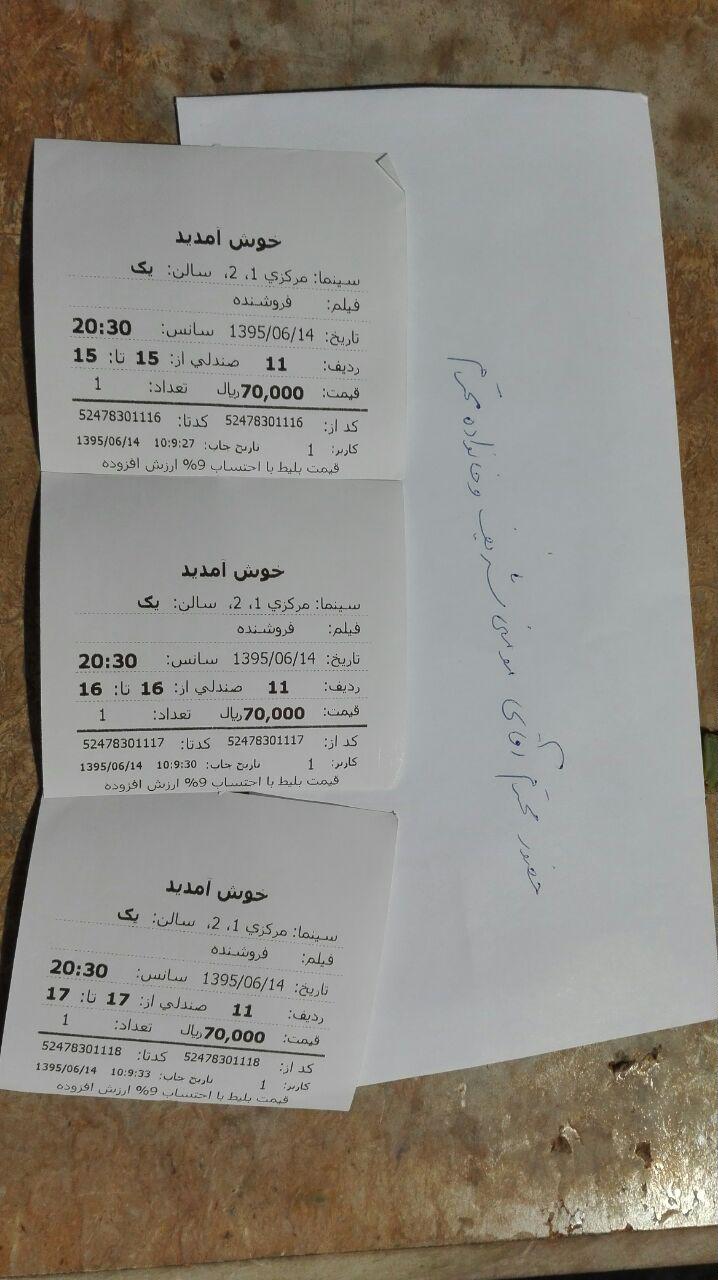 خوش آمدید
سینما: مرکزي 1، 2، سالن: یک
فیلم: فروشنده
تاریخ: 1395/06/14 سانس: 20:30
ردیف: 11 صندلي از: 15 تا: 15
قیمت: 70,000ریال تعداد: 1
کد از: 52478301116 کدتا: 52478301116
کاربر: 1 تاریخ چاپ: 10:9:27 1395/06/14
قیمت بلیط با احتساب 9% ارزش افزوده
خوش آمدید
سینما: مرکزي 1، 2، سالن: یک
فیلم: فروشنده
تاریخ: 1395/06/14 سانس: 20:30
ردیف: 11 صندلي از: 16 تا: 16
قیمت: 70,000ریال تعداد: 1
کد از: 52478301117 کدتا: 52478301117
کاربر: 1 تاریخ چاپ: 10:9:30 1395/06/14
قیمت بلیط با احتساب 9% ارزش افزوده
خوش آمدید
سینما: مرکزي 1، 2، سالن: یک
فیلم: فروشنده
تاریخ: 1395/06/14 سانس: 20:30
ردیف: 11 صندلي از: 17 تا: 17
قیمت: 70,000ریال تعداد: 1
کد از: 52478301118 کدتا: 52478301118
کاربر: 1 تاریخ چاپ: 10:9:33 1395/06/14
قیمت بلیط با احتساب 9% ارزش افزوده
حضور محترم آقای شریف و خانواده محترم